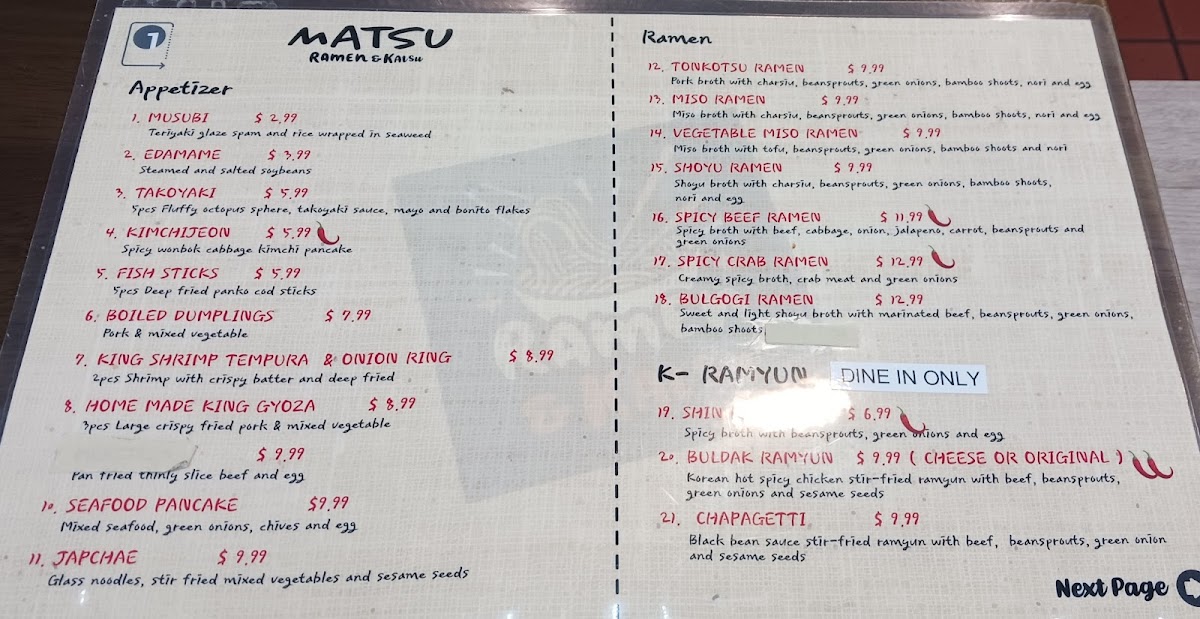 1
MATSU
RAMEN & KATSU
Appetizer
1. MUSUBI $ 2.99
Teriyaki glaze spam and rice wrapped in seaweed
2. EDAMAME $ 3.99
Steamed and salted soybeans
3. TAKOYAKI $ 5.99
5pcs Fluffy octopus sphere, takoyaki sauce, mayo and bonito flakes
4. KIMCHIJEON $ 5.99
Spicy wonbok cabbage kimchi pancake
5. FISH STICKS $ 5.99
5pcs Deep fried panko cod sticks
6. BOILED DUMPLINGS $ 7.99
Pork & mixed vegetable
7. KING SHRIMP TEMPURA & ONION RING $ 8.99
2pcs Shrimp with crispy batter and deep fried
8. HOME MADE KING GYOZA $ 8.99
3pcs Large crispy fried pork & mixed vegetable
$ 9.99
Pan fried thinly slice beef and egg
10. SEAFOOD PANCAKE $9.99
Mixed seafood, green onions, chives and egg
11. JAPCHAE $ 9.99
Glass noodles, stir fried mixed vegetables and sesame seeds
Ramen
12. TONKOTSU RAMEN $ 9.99
Pork broth with charsiu, beansprouts, green onions, bamboo shoots, nori and egg
13. MISO RAMEN $ 9.99
Miso broth with charsiu, beansprouts, green onions, bamboo shoots, nori and egg
14. VEGETABLE MISO RAMEN $ 9.99
Miso broth with tofu, beansprouts, green onions, bamboo shoots and nori
15. SHOYU RAMEN $ 9.99
Shoyu broth with charsiu, beansprouts, green onions, bamboo shoots,
nori and egg
16. SPICY BEEF RAMEN $ 11.99
Spicy broth with beef, cabbage, onion, jalapeno, carrot, beansprouts and
green onions
17. SPICY CRAB RAMEN $ 12.99
Creamy spicy broth, crab meat and green onions
18. BULGOGI RAMEN $ 12.99
Sweet and light shoyu broth with marinated beef, beansprouts, green onions,
bamboo shoots
K- RAMYUN DINE IN ONLY
19. SHIN $ 6.99
Spicy broth with beansprouts, green onions and egg
20. BULDAK RAMYUN $ 9.99 ( CHEESE OR ORIGINAL )
Korean hot spicy chicken stir-fried ramyun with beef, beansprouts,
green onions and sesame seeds
21. CHAPAGETTI $ 9.99
Black bean sauce stir-fried ramyun with beef, beansprouts, green onion
and sesame seeds
Next Page